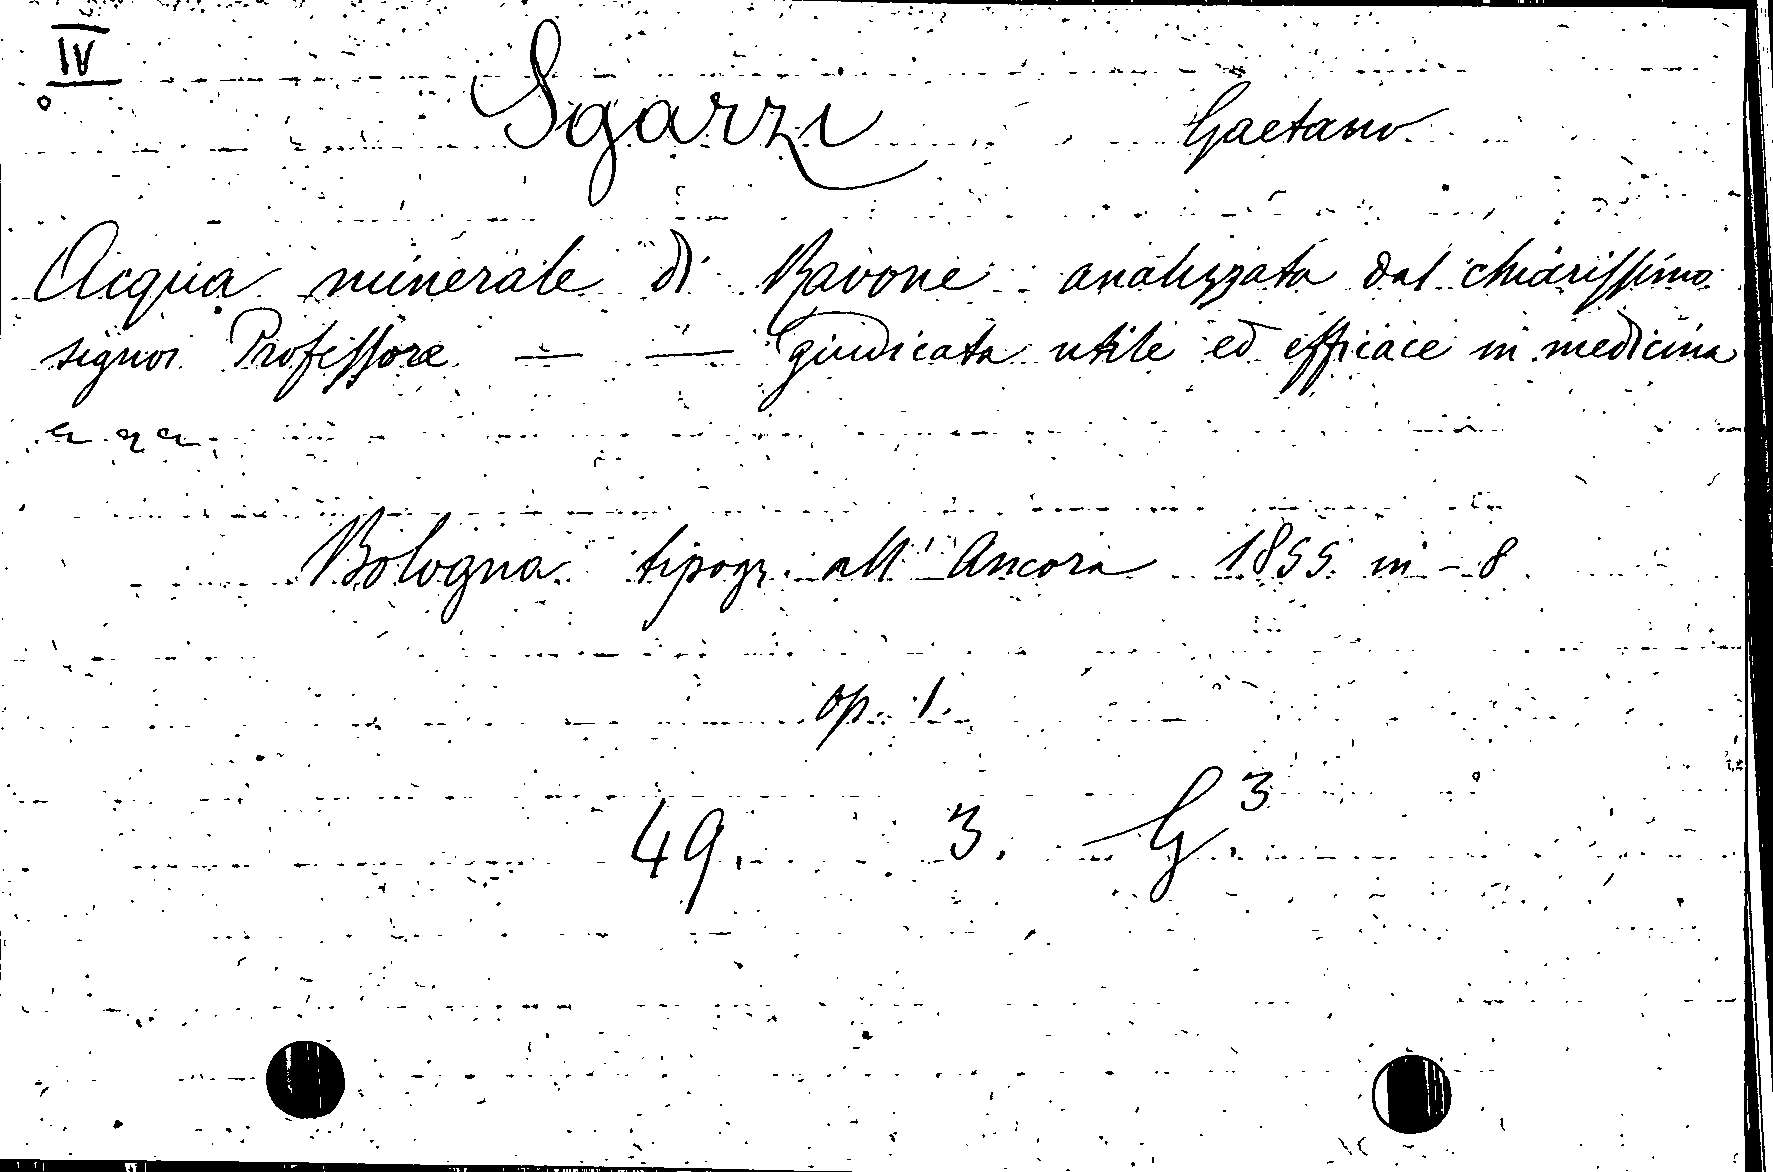 IV
Sgarzi Gaetano
Acqua minerale di Ravone analizzata dal chiarissimo
signor Professore — — giudicata utile ed efficace in medicina
Bologna tipogr. all' Ancora 1855 in-8
op. 1.
49. 3. G.3